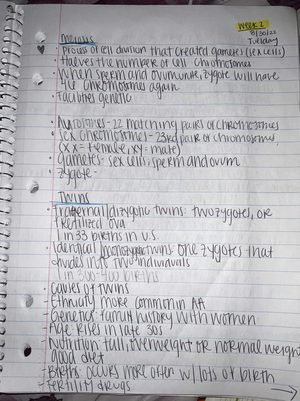 week 2
8/30/22
Tuesday
meiosis
· Process of cell division that created gametes (sex cells)
· Halves the number of cell chromosomes
· When sperm and ovum unite, zygote will have
46 chromosomes again
· Facilities genetic
· Autosomes - 22 matching pairs of chromosomes
· Sex chromosomes - 23rd pair of chromosomes,
(xx = female, xy = male)
· gametes - sex cells, sperm and ovum
· zygote -
Twins
· Fraternal/dizygotic twins: two zygotes, or
fertilized ova
1 in 33 births in U.S.
· Identical/monozygotic twins: one zygotes that
divides into two individuals
1 in 300-400 births
· causes of twins
- Ethnicity more common in AA
- Genetics family history with women
- Age rises in late 30s
- Nutrition: tall, overweight or normal weight
good diet
- Births: occurs more often w/ lots of birth
- Fertility drugs